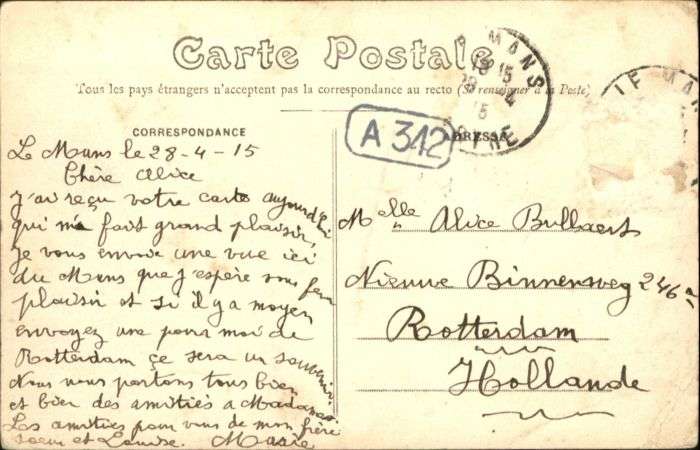 Carte Postale
Tous les pays étrangers n'acceptent pas la correspondance au recto (Se renseigner à la Poste)
CORRESPONDANCE
ADRESSE
A 312
LE MANS
Le Mans le 28-4-15
Chère Alice
J'ai reçu votre carte aujourd'hui
qui m'a fait grand plaisir,
je vous envoie une vue ici
du Mans que j'espère vous fera
plaisir et si il y a moyen
envoyez une pour moi de
Rotterdam çe sera un souvenir.
Nous nous portons tous bien
et bien des amitiés à Madame.
Les amitiées pour vous de mon frère
soeur et Louise. Marie
Melle Alice Bullaert
Nieuwe Binnenweg 246a
Rotterdam
Hollande